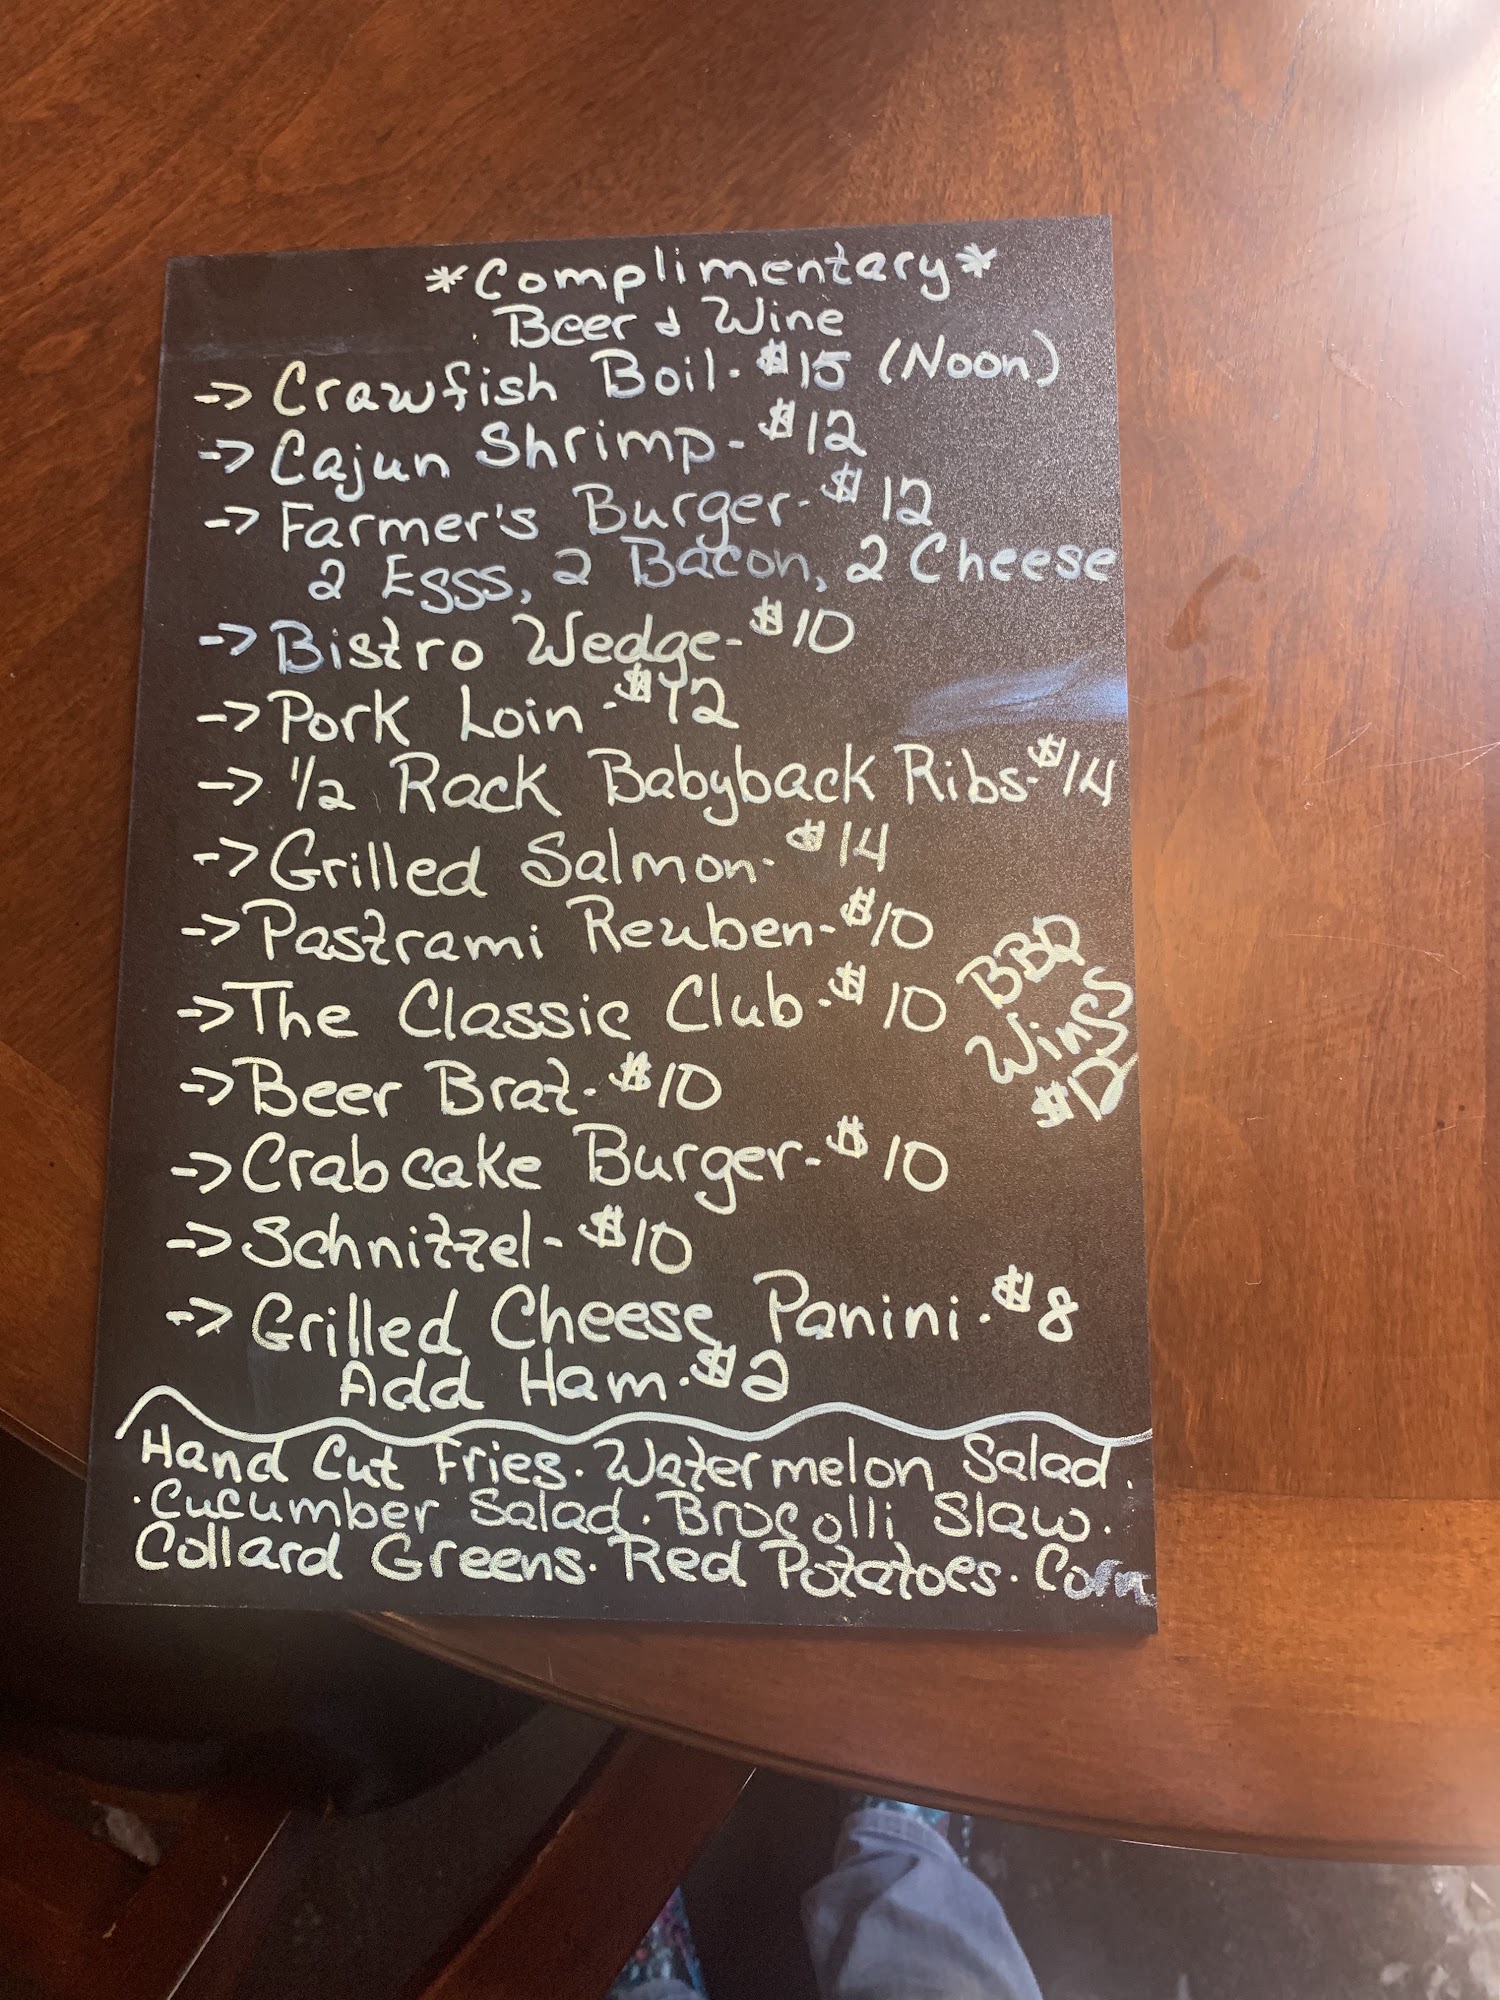 *Complimentary*
Beer & Wine
-> Crawfish Boil. $15 (Noon)
-> Cajun Shrimp- $12
-> Farmer's Burger- $12
2 Eggs, 2 Bacon, 2 Cheese
-> Bistro Wedge- $10
-> Pork Loin. $12
-> 1/2 Rack Babyback Ribs. $14
-> Grilled Salmon. $14
-> Pastrami Reuben- $10
-> The Classic Club. $10
BBQ
Wings
$10
-> Beer Brat- $10
-> Crabcake Burger- $10
-> Schnitzel- $10
-> Grilled Cheese Panini. $8
Add Ham. $2
Hand Cut Fries. Watermelon Salad.
.Cucumber Salad. Brocolli Slaw.
Collard Greens. Red Potatoes. Corn